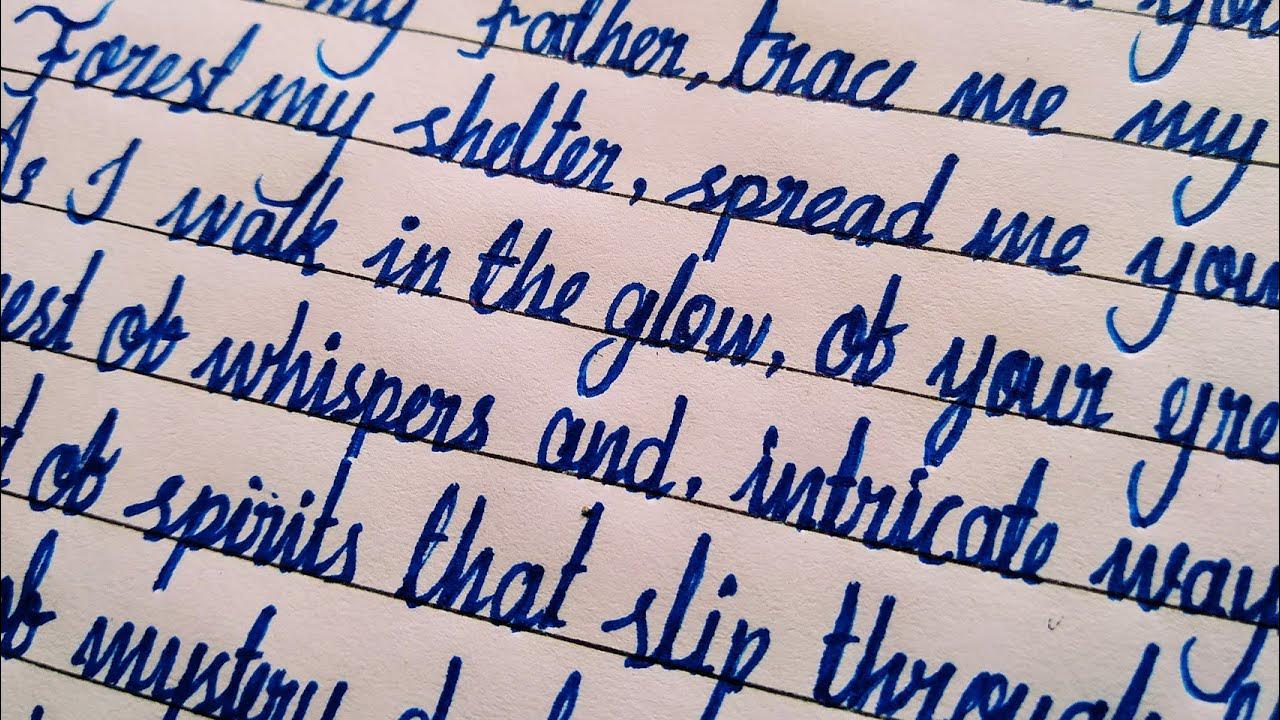 my Father, trace me my
Forest my shelter, spread me you
As I walk in the glow, of your gre
est of whispers and, intricate way
of spirits that slip through
of mystery